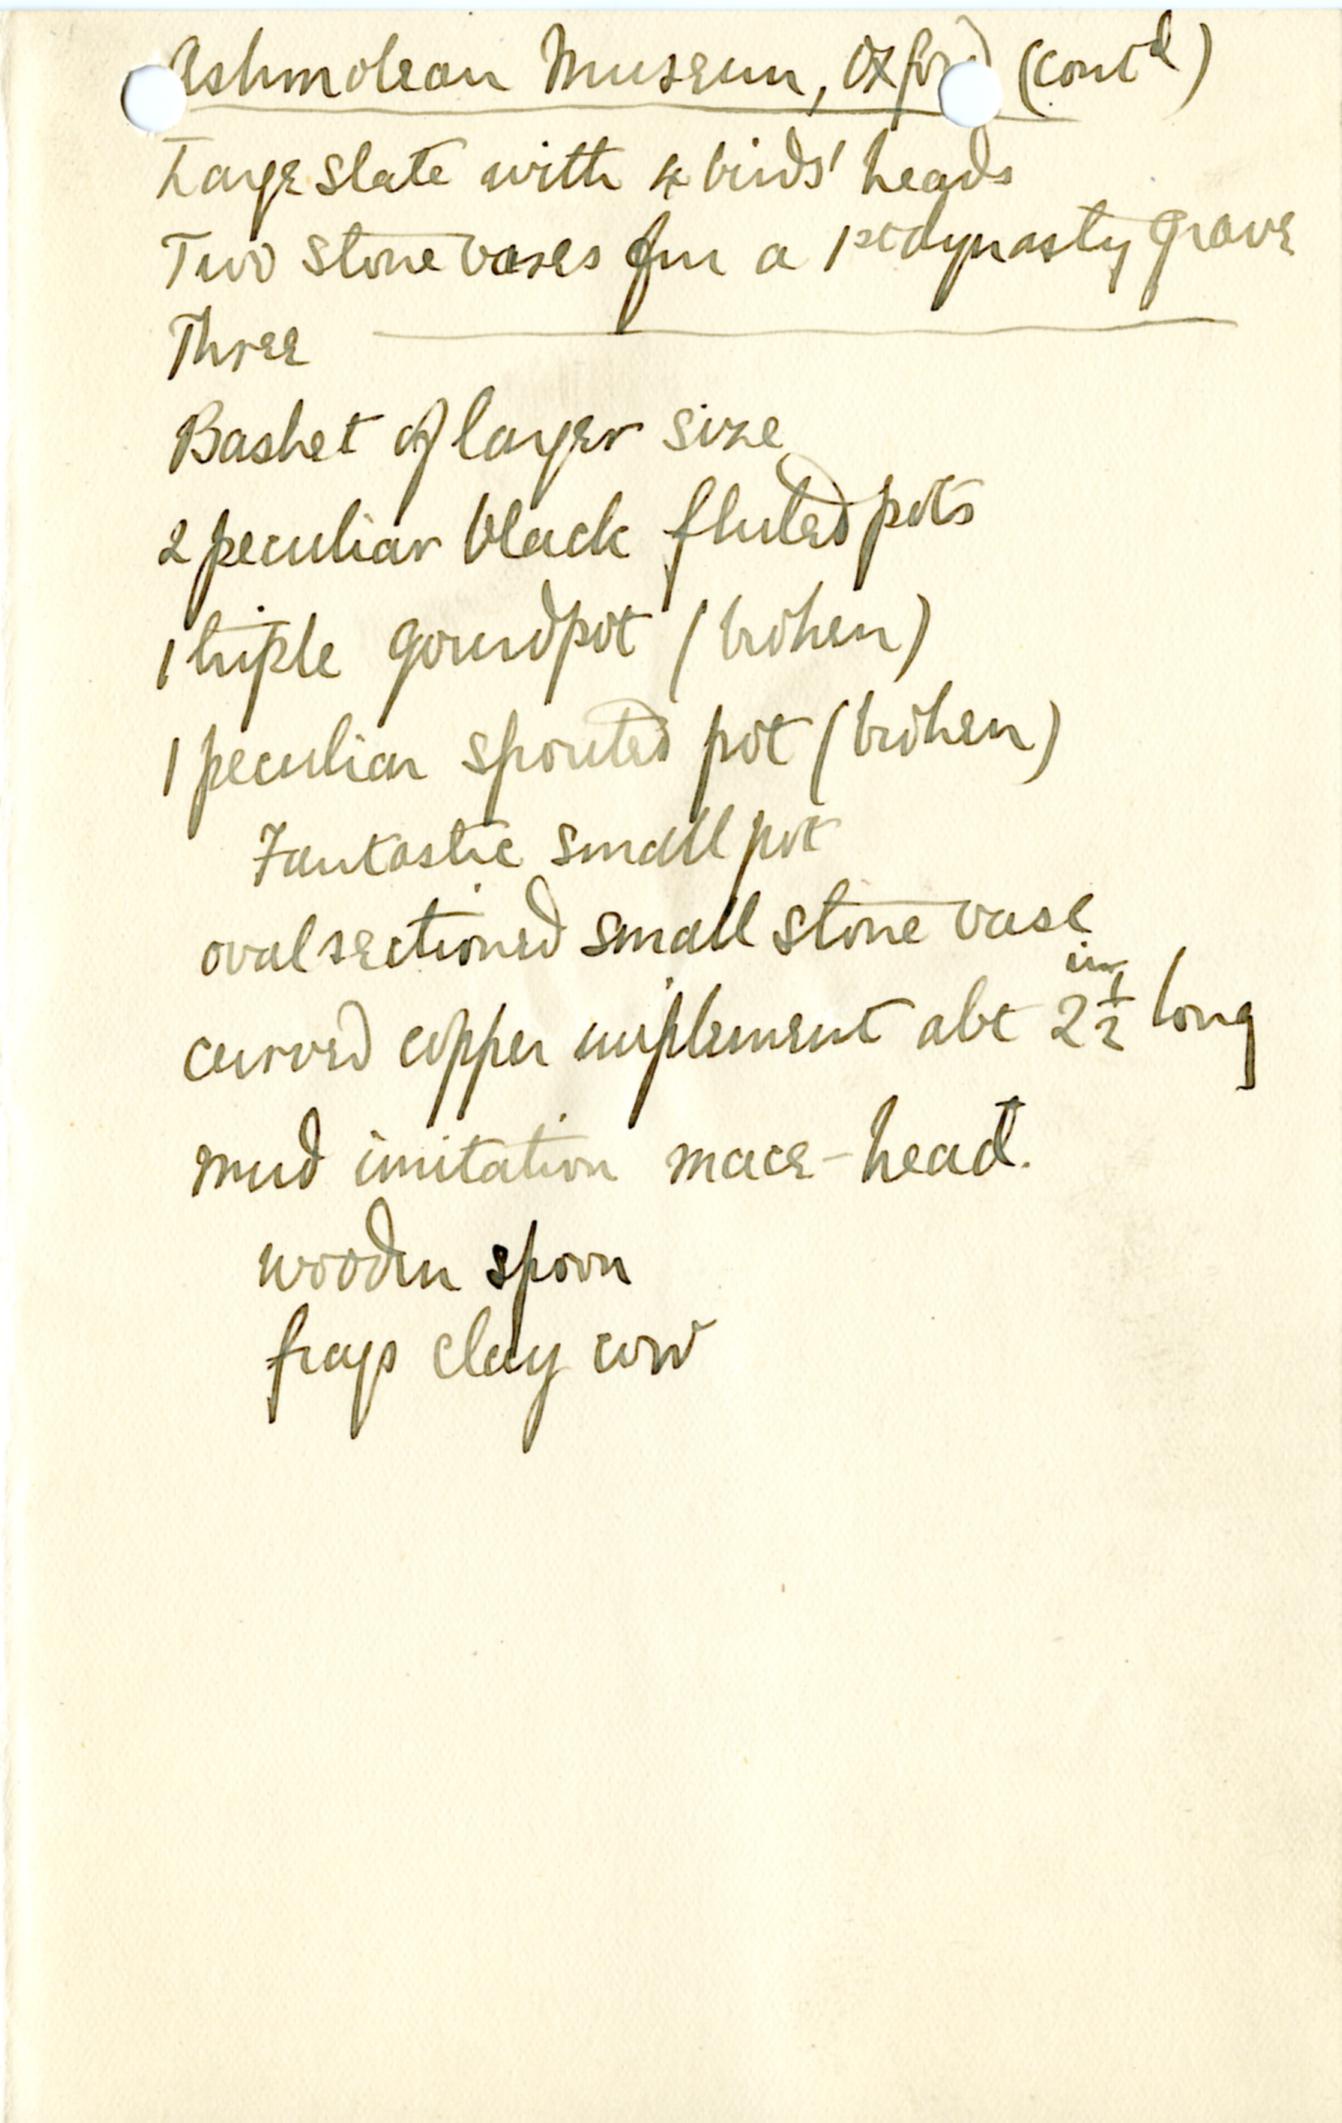 Ashmolean Museum, Oxford (contd)
Large slate with 4 birds' heads
Two stone vases fm a 1st dynasty grave
Three
Basket of larger size
2 peculiar black fluted pots
1 triple gourd pot (broken)
1 peculiar spouted pot (broken)
Fantastic small pot
oval sectioned small stone vase
curved copper implement abt 2½ in long
mud imitation mace-head.
wooden spoon
frags clay cow